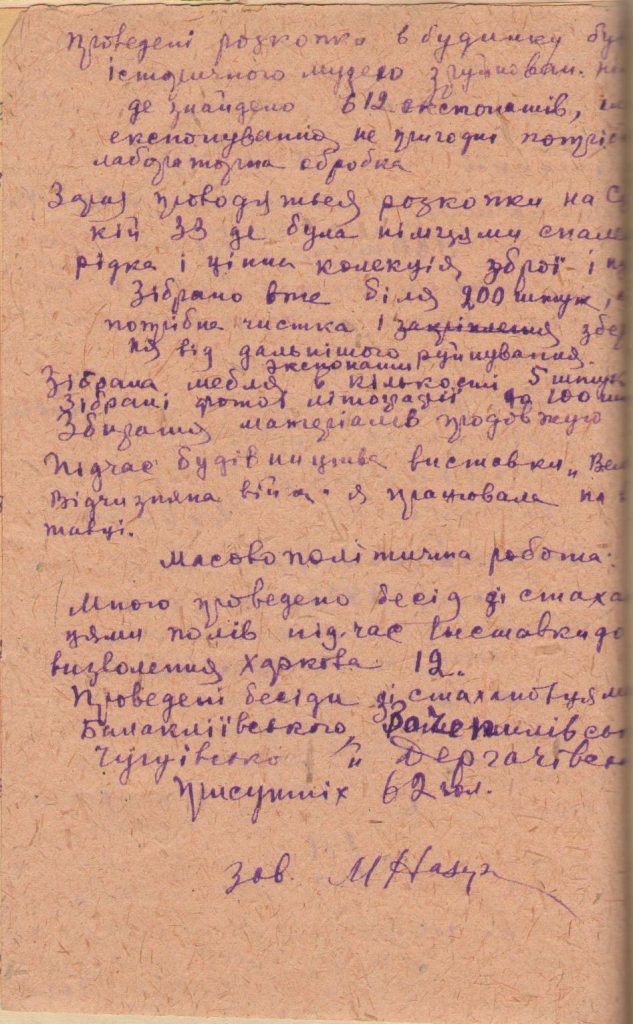 Проведені розкопки в будинку бу
історичного музею зруйнован.
де знайдено 612 експонатів,
експонування не пригодні потріб
лабораторна обробка
Зараз проводяться розкопки на С
кій 33 де була німцями спале
рідка і цінна колекція зброї і
Зібрано вже біля 200 штук,
потрібна чистка і закріплення збе
ня від дальнішого руйнування.
експонати
Зібрана мебля в кількості 5 штук
Зібрані фотої літографії до 100
Збирання матеріалів продовжую
Підчас будівництва виставки „Вел
Відчизняна війна" я працювала на
тавці.
Масово політична робота.
Мною проведено бесід зі стаха
цями полів під час виставки до
визволення Харкова 12.
Проведені бесіди зі стахановцями
Балакліївського, Зачепилівсь
Чугуївсько " Дергачівсь
Присутніх 62 чол.
зав. М